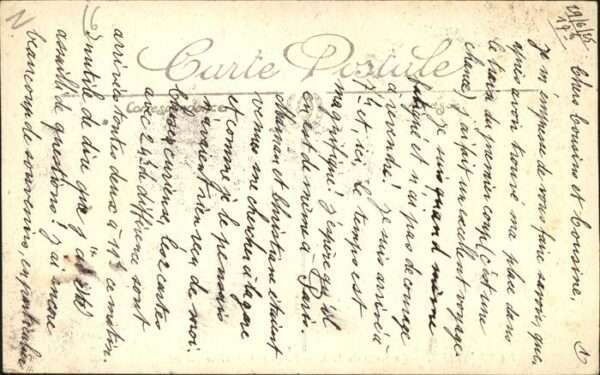 Carte Postale
Correspondance
29/6/25
Chers cousins et cousine,
Je m'empresse de vous faire savoir, que,
après avoir trouvé ma place dans
le train du premier coup (c'est une
chance) j'ai fait un excellent voyage
Je suis quand même
fatigué et n'ai pas de courage
à revendre! Je suis arrivé à
et, ici, le temps est
magnifique! J'espère qu'il
en est de même à Paris.
Maman et Christiane étaient
venues me chercher à la gare
et comme je le pensais
n'avaient rien reçu de moi.
curieux, les 2 cartes
avec 24h de différence sont
arrivées toutes deux à 11h ce matin.
Inutile de dire que j'ai été
assailli de questions! J'ai encore
beaucoup de souvenirs, en particulier